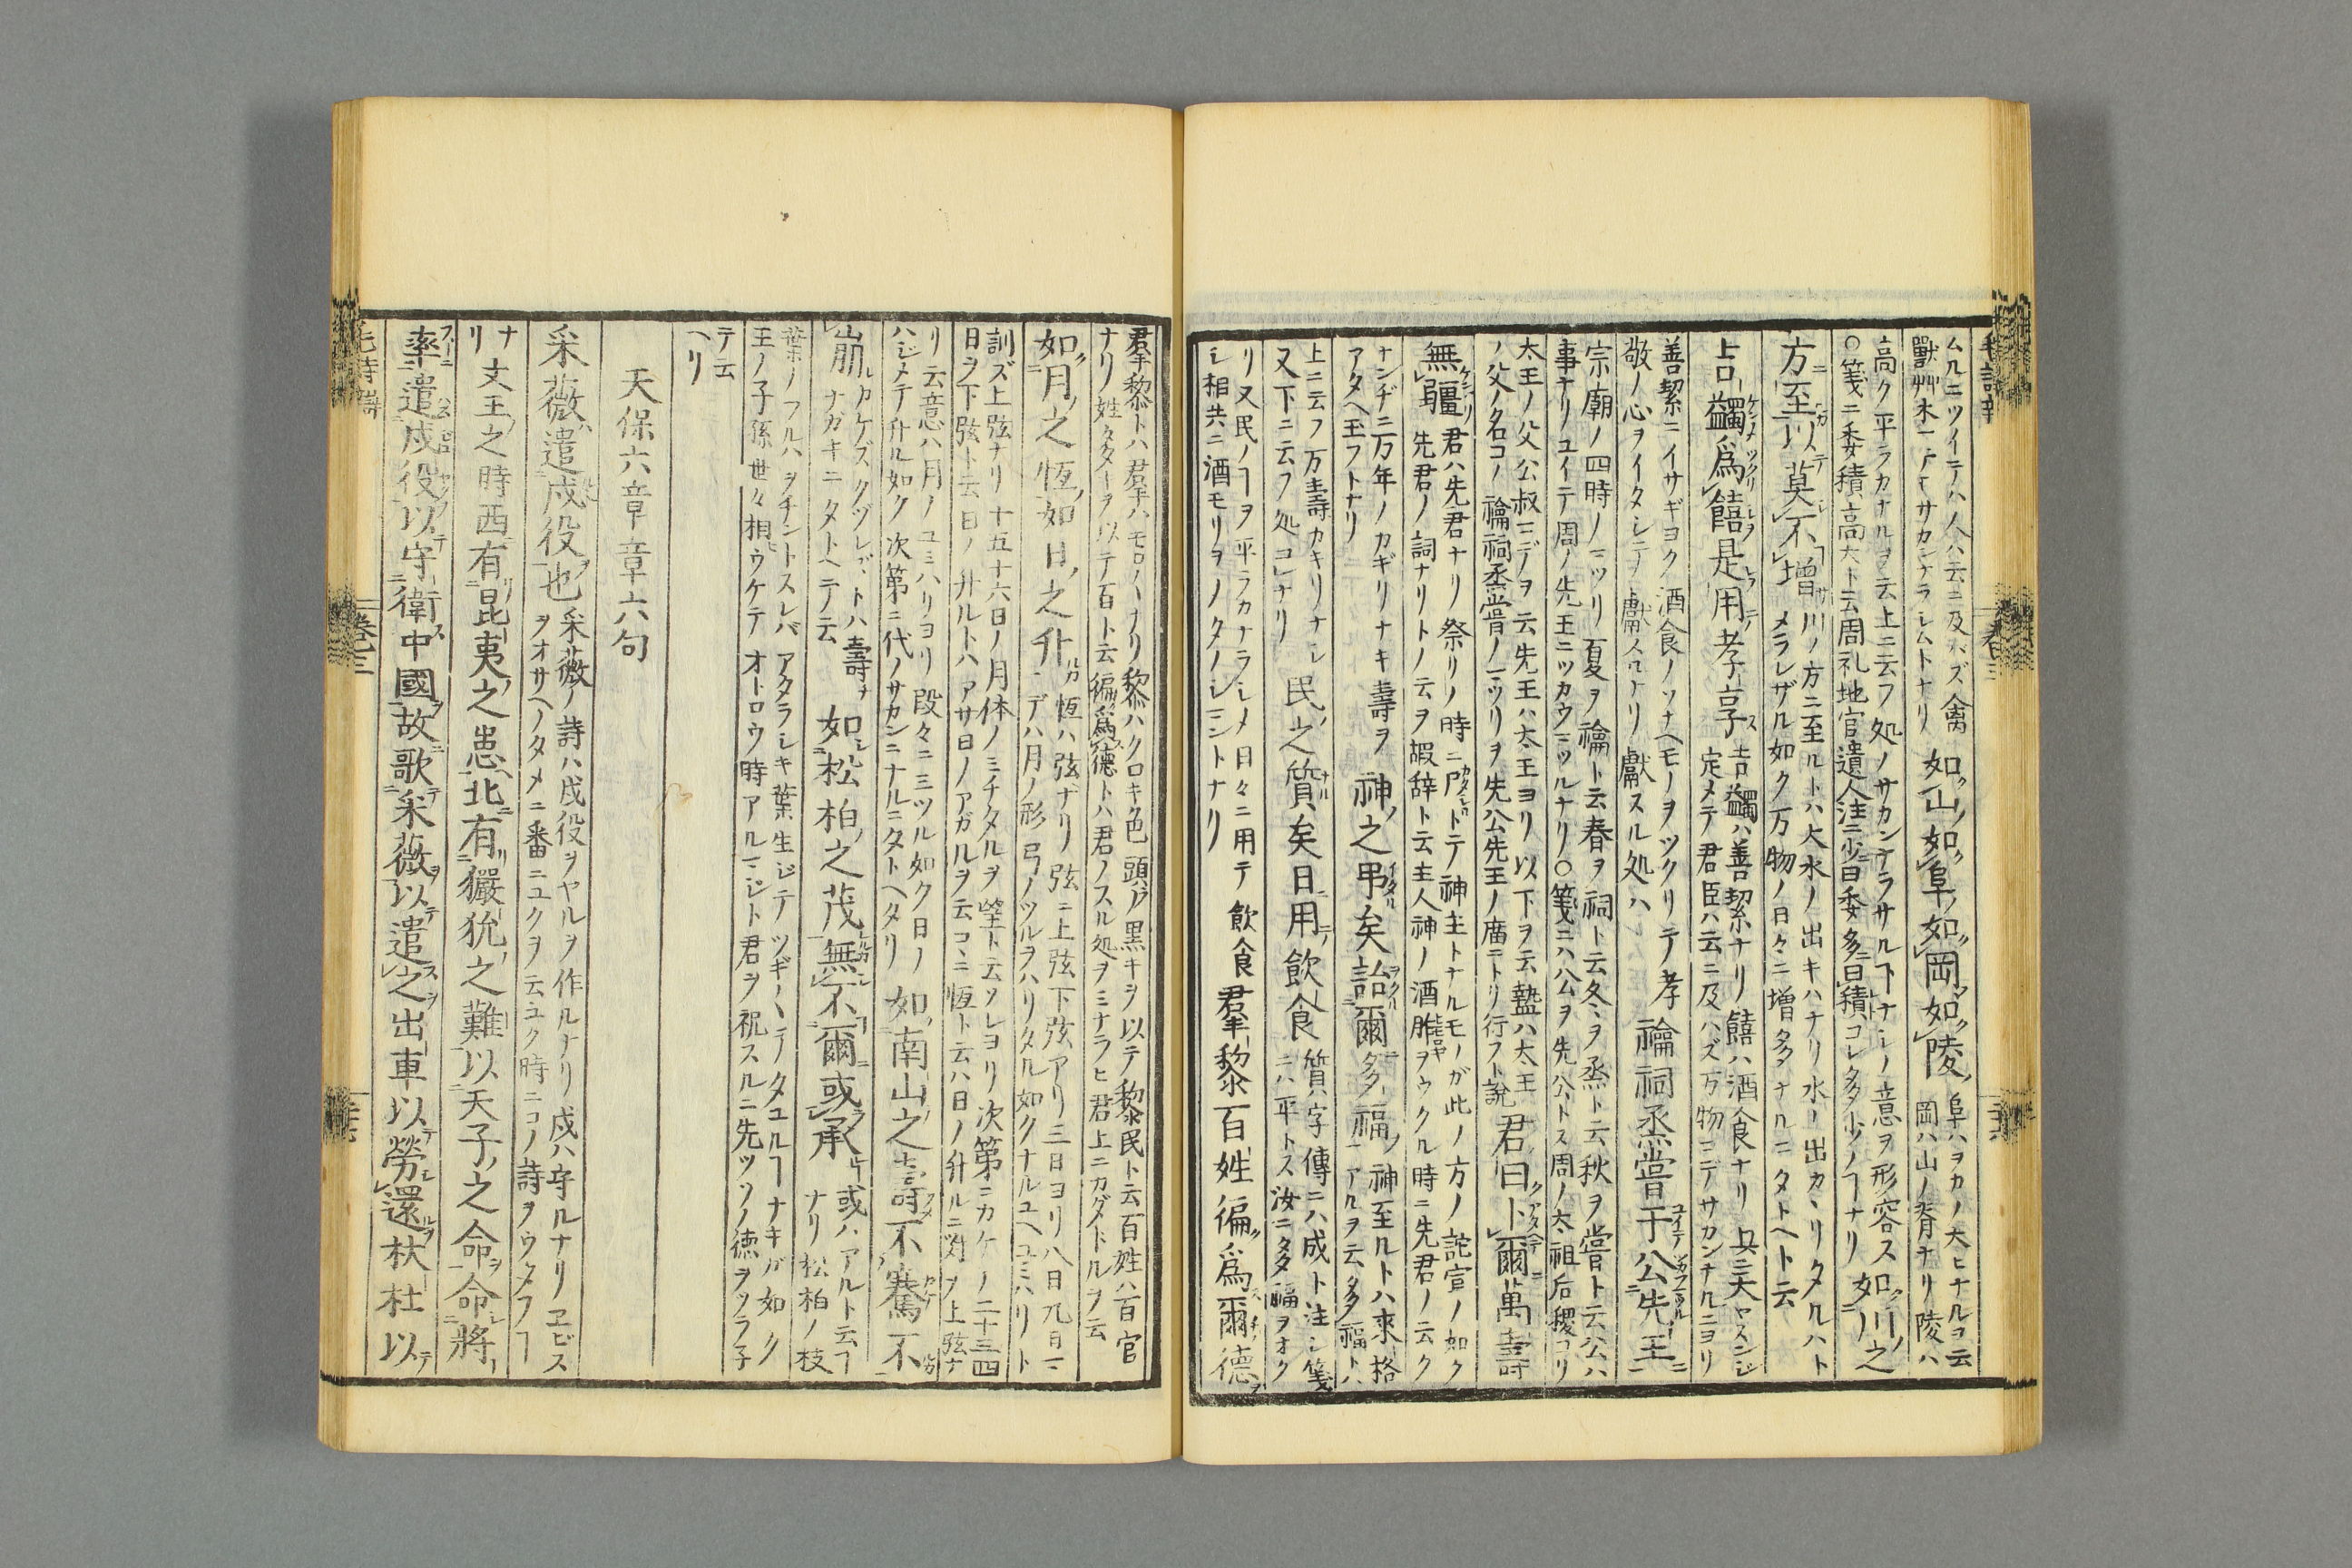 ムルニツイテハ人ハ云ニ及ハズ禽
獸艸木マテサカンナラシムトナリ
如山如阜如岡如陵
阜ハヲカノ大ヒナルヲ云
岡ハ山ノ脊ナリ陵ハ
高ク平ラカナルヲ云上ニ云フ処ノサカンナラサルヿナシノ意ヲ形容ス
○箋ニ委積高大ト云周礼地官遺人注ニ少曰委多曰積コレ多少ノヿナリ
如川之
方至以莫不增
川ノ方ニ至ルトハ大水ノ出キハナリ水ノ出カヽリタルハト
メラレザル如ク万物ノ日々ニ增多ナルニタトヘト云
吉蠲爲饎是用孝享
吉蠲ハ善絜ナリ饎ハ酒食ナリ
定メテ君臣ハ云ニ及ハズ万物ミデサカンナルニヨリ
善絜ニイサギヨク酒食ノソナヘモノヲツクリテ孝
敬ノ心ヲイタシテ獻スルナリ獻スル処ハ
禴祠烝嘗于公先王
宗廟ノ四時ノマツリ夏ヲ禴ト云春ヲ祠ト云冬ヲ烝ト云秋ヲ嘗ト云公ハ
事ナリユイテ周ノ先王ニツカウマツルナリ○箋ニハ公ヲ先公トス周ノ太祖后稷ヨリ
太王ノ父公叔マデヲ云先王ハ太王ヨリ以下ヲ云盩ハ太王
ノ父ノ名コノ禴祠烝嘗ノマツリヲ先公先王ノ廟ニトリ行フト說
君曰卜爾萬壽
無疆
君ハ先君ナリ祭リノ時ニ尸トテ神主トナルモノガ此ノ方ノ詫宣ノ如ク
先君ノ詞ナリトノ云ヲ嘏辞ト云主人神ノ酒胙ヲウクル時ニ先君ノ云ク
ナンヂニ万年ノカギリナキ壽ヲ
アタヘ玉フトナリ
神之弔矣詒爾多福
神至ルトハ來格
マアルヲ云多福トハ
上ニ云フ万壽カキリナシ
又下ニ云フ処コレナリ
民之質矣日用飮食
質ハ字傳ニハ成ト注シ箋
ニハ平トス汝ニ多福ヲオク
リ又民ノヿヲ平ラカナラシメ日々ニ用テ飲食
シ相共ニ酒モリヲノタノシミントナリ
羣黎百姓徧爲爾德
羣黎トハ君羊ハモロ〳〵ナリ黎ハクロキ色頭ノ黑キヲ以テ黎民ト云百姓ハ百官
ナリ姓多キヲ以テ百ト云徧爲德トハ君ノスル処ヲミナラヒ君上ニカダドルヲ云
如月之恆如日之升
恆ハ弦ナリ弦ニ上弦下弦アリ三日ヨリ八日九日マ
デハ月ノ形弓ノツルヲハリタル如クナルユヘユミハリト
訓ズ上弦ナリ十五十六日ノ月体ノミチタルヲ望ト云ソレヨリ次第ニカケノ二十三四
日ヲ下弦ト云日ノ升ルトハアサ日ノアガルヲ云コヽニ恆ト云ハ日ノ升ルニ對ヲ上弦ナ
リ云意ハ月ノユミハリヨリ段々ニミツル如ク日ノ
ハジメテ升ル如ク次第ニ代ノサカンニナルニタトヘタリ
如南山之壽不騫不
崩
カケズクヅレズトハ壽ヲ
ナガキニタトヘテ云
如松柏之茂無不爾或承
或ハアルト云ヿ
ナリ松柏ノ枝
葉ノフルハヲチントスレバアタラシキ葉生ジテツギ〳〵テタユルヿナキガ如ク
王ノ子孫世々相ウケテオトロウ時アルマジト君ヲ祝スルニ先ツソノ徳ヲソラ子
テ云
ヘリ
天保六章章六句
采薇遣戍役也
采薇ノ詩ハ戍役ヲヤルヲ作ルナリ戍ハ守ルナリヱビス
ヲオサヘノタメニ番ニユクヲ云ユク時ニコノ詩ヲウタフヿ
ナ
リ
文王之時西有昆夷之患北有玁狁之難以天子之命命將
率遣戍役以守衛中國故歌采薇以遣之出車以勞還杕杜以
毛詩辯
卷三